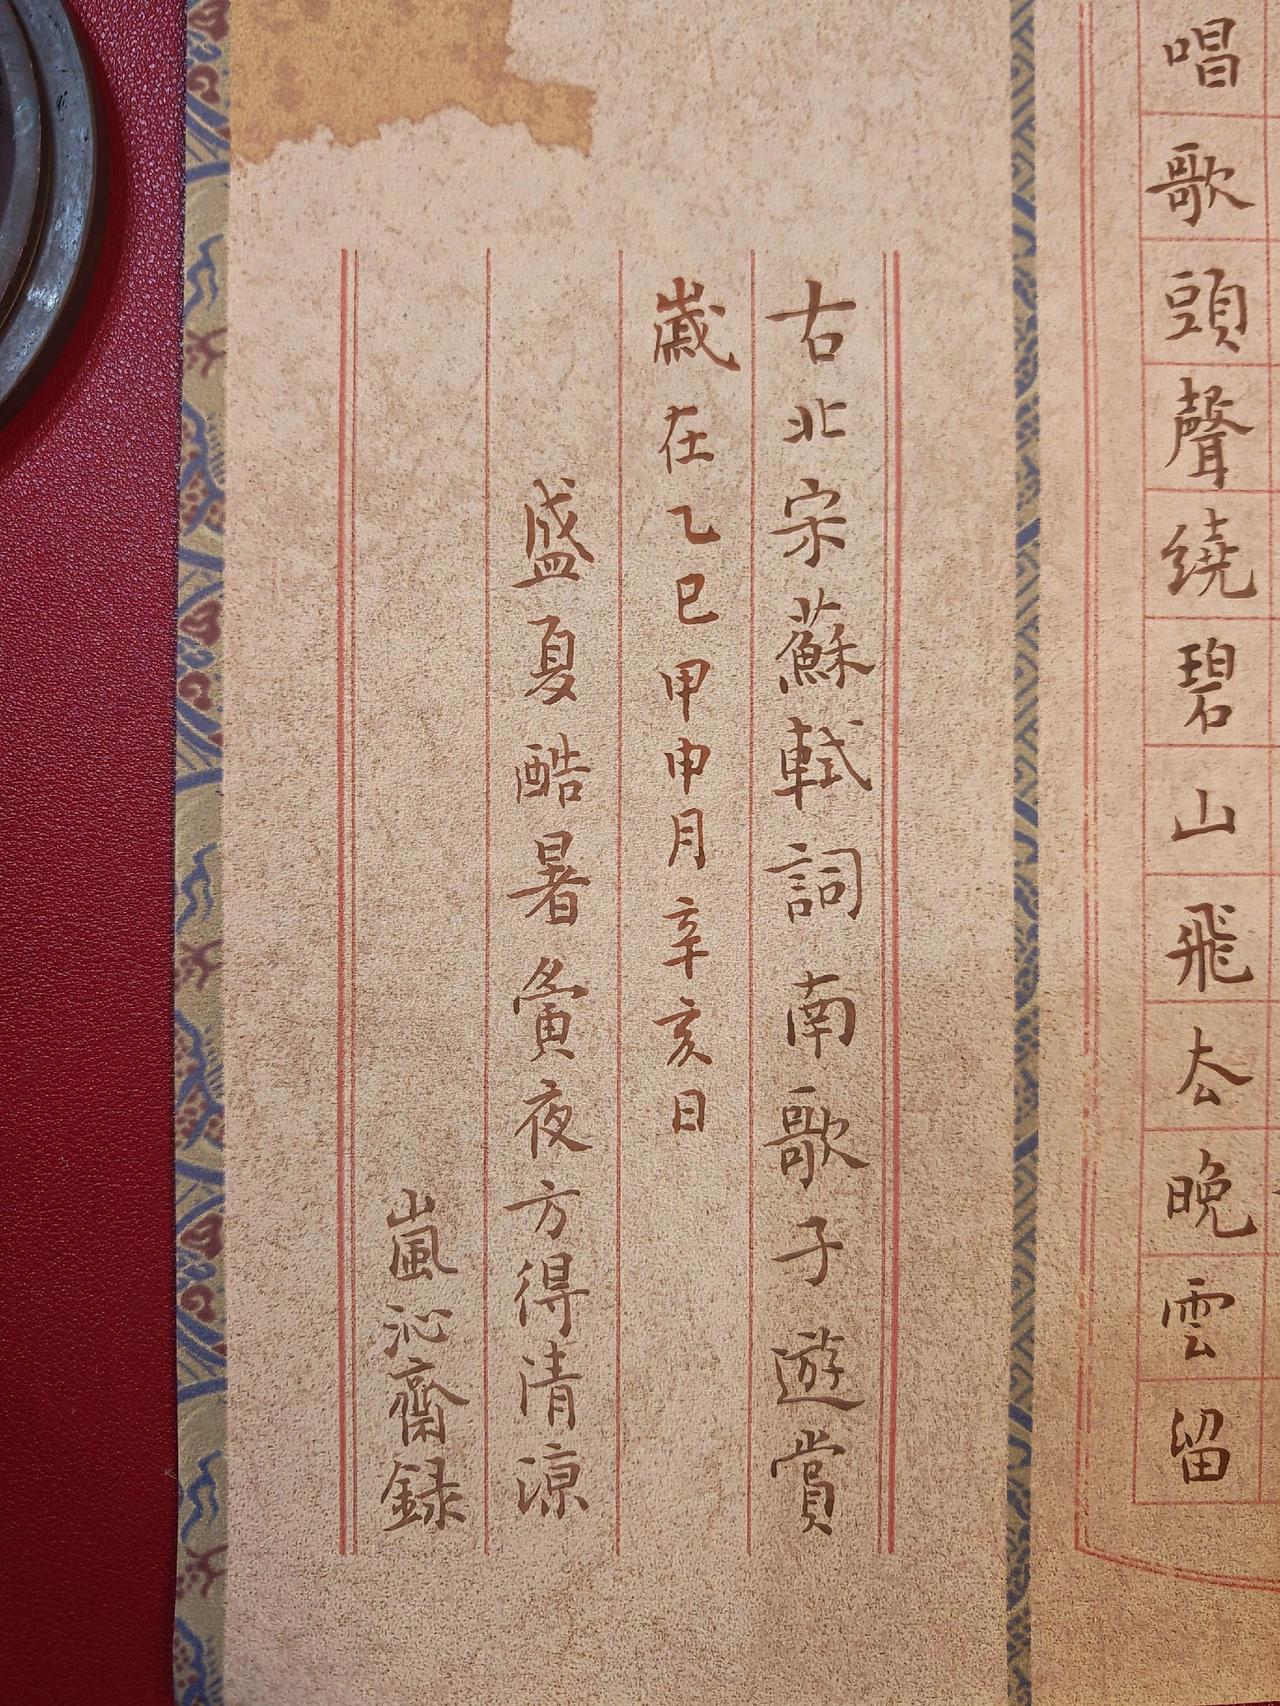 唱歌頭聲繞碧山飛去晚雲留
右北宋蘇軾詞南歌子遊賞
歲在乙巳甲申月辛亥日
盛夏酷暑夤夜方得清涼
嵐沁齋錄